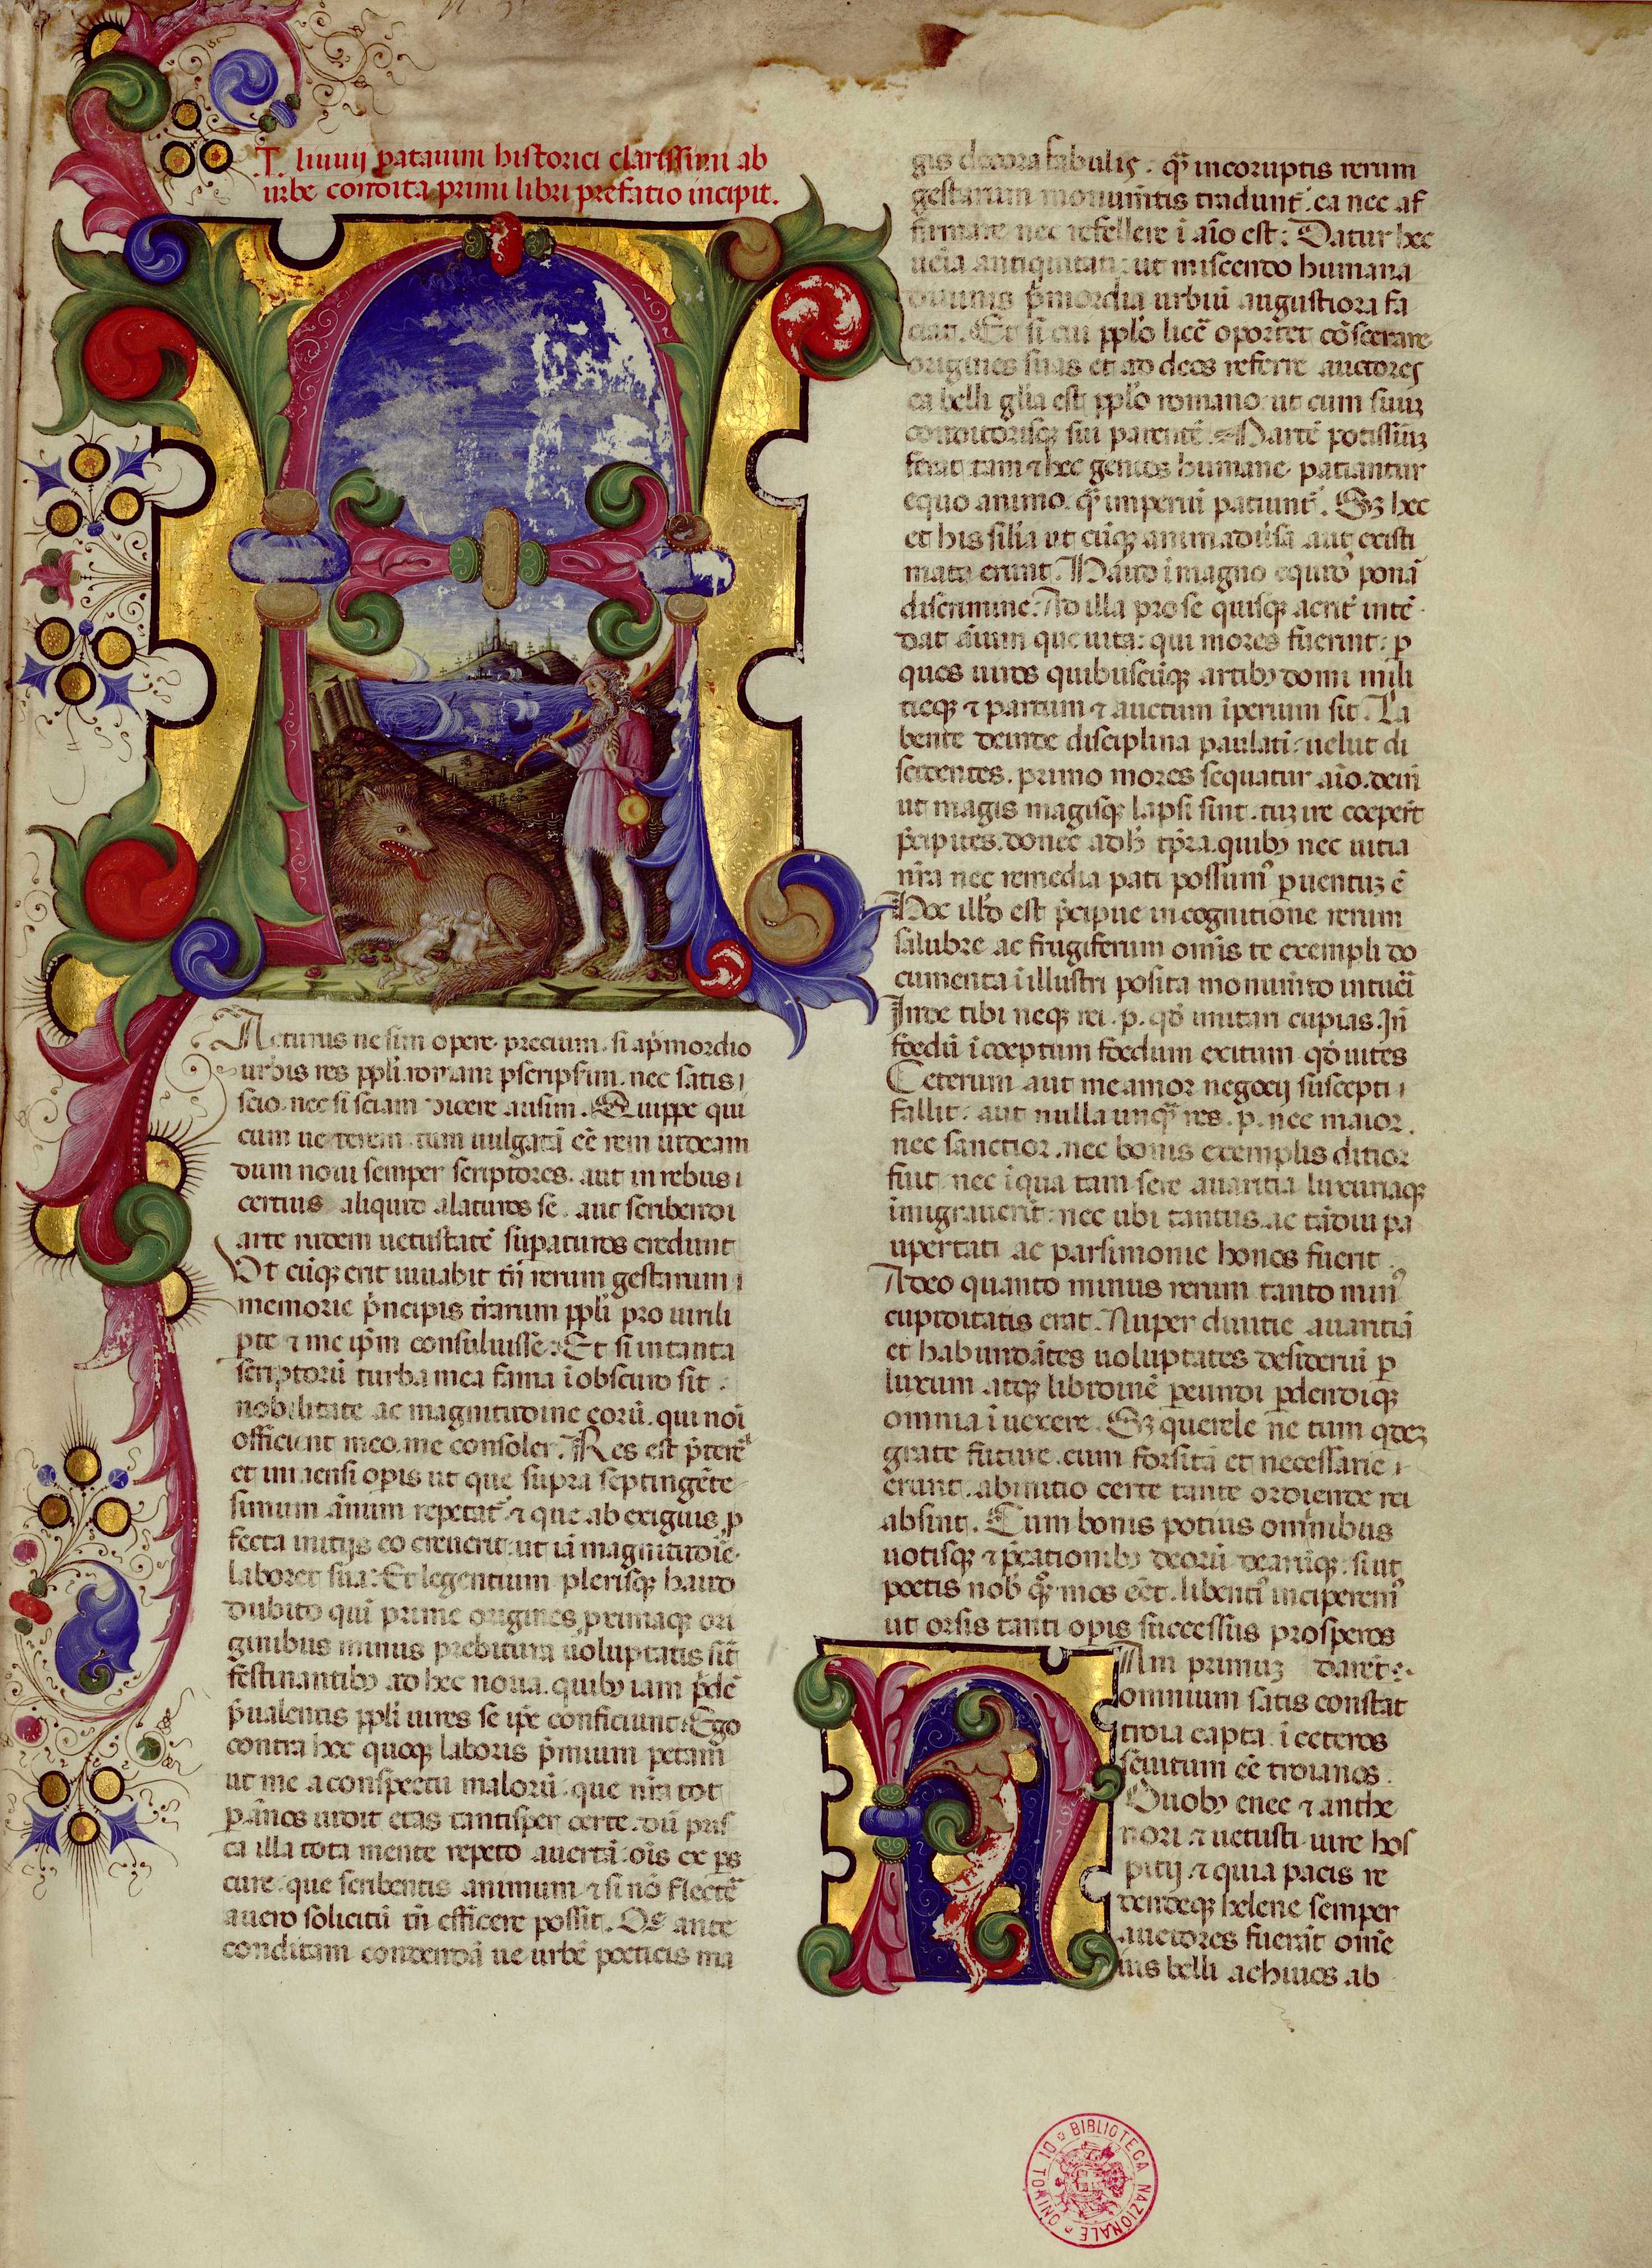 T. liuuij patauini historici clarissimi ab
urbe condita primi libri prefatio incipit.
Acturus ne sim opere precium si a p̄mordio
urbis res ppli romani pscripsim. nec satis
scio. nec si sciam dicere ausim. Quippe qui
cum ueterem tum uulgatā eē rem uideam
dum noui semper scriptores. aut in rebus
certius aliquid alaturos se. aut scribendi
arte rudem uetustatē supaturos credunt
Vt cūqꝫ erit iuuabit tn̄ rerum gestarum
memorie p̄ncipis tr̄arum ppli pro uirili
pte ⁊ me ipm̄ consuluisse. Et si in tanta
scriptorū turba mea fama i obscuro sit.
nobilitate ac magnitudine eorū. qui noī
officient meo. me consoler. Res est p̄tereā
et imensi opis ut que supra septingēte
simum ānum repetat̄ ⁊ que ab exiguis p
fecta initijs eo creuerit ut iā magnitudīe
laboret sua. Et legentium plerisqꝫ haud
dubito quī prime origines primaqꝫ ori
ginibus minus prebitura uoluptatis sīt
festinantibꝫ ad hec noua. quibꝫ iam p̄dē
p̄ualentis ppli uires se ipē conficiunt. Ego
contra hec quoqꝫ laboris p̄mium petam
ut me a conspectu malorū que nr̄a tot
p ānos uidit etas tantisper certe. dū pris
ca illa tota mente repeto auertā oīs exps
cure que scribentis animum ⁊ si nō flectē
a uero solicitū tn̄ efficere possit. Qe ante
conditam condendā ue urbē poeticis ma
gis decora fabulis. q̄ incoruptis rerum
gestarum monumētis tradunt̄. ea nec af
firmare nec refellere ī aīo est. Datur hec
uenia antiquitati ut miscendo humana
diuinis p̄mordia urbiū augustiora fa
ciat. Et si cui pplo licē oportet cōsecrare
origines suas et ad deos referre auctores
ea belli glīa est pplo romano ut cum suuꝫ
conditorisqꝫ sui parentē. Martē potissimū
ferat tam ⁊ hec gentes humane patiantur
equo animo. q̄ imperiū patiunt̄. Sꝫ hec
et his silīa ut cūqꝫ animaduisa aut existi
mata erunt. Haud i magno equidē ponā
discrimine. Ad illa pro se quisqꝫ acrit̄ intē
dat aīum que uita: qui mores fuerint: p
quos uiros quibuscūqꝫ artibꝫ domi mili
tieqꝫ ⁊ partum ⁊ auctum īperium sit. La
bente deinde disciplina paulati: uelut di
scedentes. primo mores sequatur aīo. dein
ut magis magisqꝫ lapsi sint. tuꝫ ire ceperīt
p̄cipites. donec ad h̄ tp̄ra. quibꝫ nec uitia
nr̄a nec remedia pati possumꝰ puentuꝫ ē
Hoc illd̄ est p̄cipue in cognitione rerum
salubre ac frugiferum omīs te exempli do
cumenta ī illustri posita monumēto intueri
Inde tibi neqꝫ rei. p. qd̄ imitari cupias. In̄
foedū īceptum foedum exitum qd̄ uites
Ceterum aut me amor negocij suscepti
fallit: aut nulla unq̄ res. p. nec maior.
nec sanctior. nec bonis exemplis ditior
fuit nec i qua tam sere auaritia luxuriaqꝫ
imigrauerīt: nec ubi tantus. ac tādiu pa
upertati ac parsimonie honos fuerit.
Adeo quanto minus rerum tanto minꝰ
cupiditatis erat. Nuper diuitie auaritiā
et habundātes uoluptates desideriū p
luxum atqꝫ libidinē pereundi pdendiqꝫ
omnia īuexere. Sꝫ querele ne tum qdeꝫ
grate future. cum forsitā et necessarie
erunt. ab initio certe tante ordiende rei
absint. Cum bonis potius ominibus
uotisqꝫ ⁊ p̄cationibꝫ deorū dearūqꝫ siut
poetis nob̄ q̄ mos eēt. libentiꝰ inciperemꝰ
ut orsis tanti opis successus prosperos
Am primuꝫ darēt.
omnium satis constat
troia capta. i ceteros
seuitum eē troianos.
Duobꝫ enee ⁊ anthe
nori ⁊ uetusti iure hos
pitij ⁊ quia pacis re
dendeqꝫ helene semper
auctores fuerāt omē
ius belli achiuos ab
BIBLIOTECA NAZIONALE DI TORINO